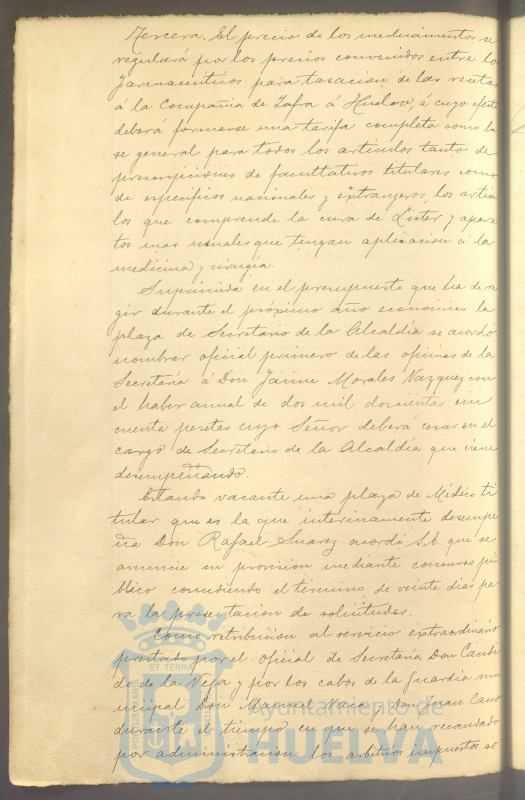 Tercera. El precio de los medicamentos se
regulará por los precios convenidos entre lo
farmaceuticos para tasacion de las recetas
á la Compañia de Zafra á Huelva, á cuyo efecto
deberá formarse una tarifa completa como ba
se general para todos los articulos tanto de
prescripciones de facultativos titulares como
de especificos nacionales y extrangeros, los artícu
los que comprende la cura de Lister y apara
tos mas usuales que tengan aplicacion á la
medicina y cirugía.
Suprimida en el presupuesto que ha de re
gir durante el próximo año economico la
plaza de Secretario de la Alcaldía se acordó
nombrar oficial primero de las oficinas de la
Secretaría á Don Jaime Morales Vazquez con
el haber anual de dos mil doscientas cin
cuenta pesetas cuyo Señor deberá cesar en el
cargo de Secretario de la Alcaldía que viene
desempeñando.
Estando vacante una plaza de Médico ti
tular que es la que interinamente desempe
ña Don Rafael Suarez acordó S.E. que se
anuncie su provision mediante concurso pú
blico concediendo el término de veinte dias pa
ra la presentacion de solicitudes.
Como retribucion al servicio extraordinario
prestado por el oficial de Secretaría Don Candi
do de la Vega y por los cabos de la Guardia mu
nicipal Don Manuel Vaca y Don Juan Cano
durante el tiempo en que se han recaudado
por administracion los arbitrios impuestos so
ET TERRAE
Ayuntamiento de
HUELVA